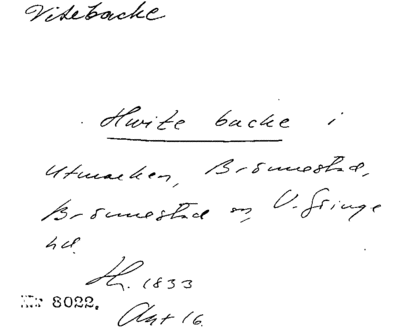 Vitebacke
Hwite backe i
utmarken, Brönnestad,
Brönnestad sn, V. Göinge
hd.
Sk. 1833
8022.
Akt 16.